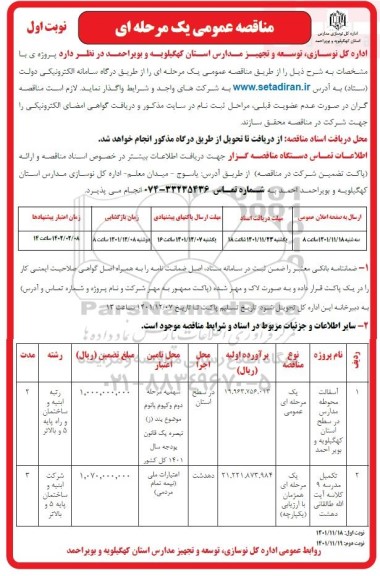 اداره کل نوسازی مدارس
استان کهگیلویه و بویراحمد
مناقصه عمومی یک مرحله ای
نوبت اول
اداره کل نوسازی، توسعه و تجهیز مدارس استان کهگیلویه و بویراحمد در نظر دارد پروژه ی با
مشخصات به شرح ذیل را از طریق مناقصه عمومی یک مرحله ای را از طریق درگاه سامانه الکترونیکی دولت
(ستاد) به آدرس www.setadiran.ir به شرکت های واجد و شرایط واگذار نماید. لازم است مناقصه
گران در صورت عدم عضویت قبلی، مراحل ثبت نام در سایت مذکور و دریافت گواهی امضای الکترونیکی را
جهت شرکت در مناقصه محقق سازند.
محل دریافت اسناد مناقصه: از دریافت تا تحویل از طریق درگاه مذکور انجام خواهد شد.
اطلاعات تماس دستگاه مناقصه گزار جهت دریافت اطلاعات بیشتر در خصوص اسناد مناقصه و ارائه
(پاکت تضمین شرکت در مناقصه) از طریق آدرس: یاسوج - میدان معلم- اداره کل نوسازی مدارس استان
کهگیلویه و بویراحمد احمد به شماره تماس ۳۳۲۳۵۴۳۶-۰۷۴ انجام می پذیرد.
ارسال به صفحه اعلان عمومی | مهلت دریافت اسناد | مهلت ارسال پاکتهای پیشنهادی | زمان بازگشایی | زمان اعتبار پیشنهادها
سه شنبه ۱۴۰۱/۱۱/۱۸ ساعت ۸ | یکشنبه ۱۴۰۱/۱۱/۲۳ ساعت ۱۸ | یکشنبه ۱۴۰۱/۱۲/۰۷ ساعت ۱۶ | دوشنبه ۱۴۰۱/۱۲/۰۸ ساعت ۸ | ۱۴۰۲/۰۳/۰۸ ساعت ۱۴
۱- ضمانتنامه بانکی معتبر را ضمن ثبت در سامانه ستاد، اصل ضمانت نامه را به همراه اصل گواهی صلاحیت ایمنی کار
را در یک پاکت قرار داده و به صورت لاک و مهر شده (پاکت ممهور به مهر شرکت و نام پروژه و شماره تماس و آدرس)
به دبیرخانه این اداره کل تحویل شود. تاریخ تسلیم پاکت تا تاریخ ۱۴۰۱/۱۲/۰۷ ساعت ۱۳
۲- سایر اطلاعات و جزئیات مربوط در اسناد و شرایط مناقصه موجود است.
ردیف | نام پروژه | نوع مناقصه | برآورده اولیه (ریال) | محل اجرا | محل تامین اعتبار | مبلغ تضمین (ریال) | رشته | مدت
۱ | آسفالت محوطه مدارس در سطح کهگیلویه و بویر احمد | یک مرحله ای عمومی | ۱۹,۹۶۳,۷۵۶,۰۷۴ | در سطح استان | سهمیه مرحله دوم وکیوم باتوم موضوع بند (ز) تبصره یک قانون بودجه سال ۱۴۰۱ کل کشور | ۱,۰۰۰,۰۰۰,۰۰۰ | رتبه ابنیه و ساختمان و راه پایه ۵ و بالاتر | ۲
۲ | تکمیل مدرسه ۹ کلاسه آیت الله طالقانی دهدشت | یک مرحله ای همزمان با ارزیابی (یکپارچه) | ۲۱,۲۳۱,۸۷۳,۹۸۴ | دهدشت | اعتبارات ملی (نیمه تمام مردمی) | ۱,۰۷۰,۰۰۰,۰۰۰ | شرکت ابنیه و ساختمان پایه ۵ و بالاتر | ۳
نوبت اول: ۱۴۰۱/۱۱/۱۸
نوبت دوم: ۱۴۰۱/۱۱/۱۹
روابط عمومی اداره کل نوسازی، توسعه و تجهیز مدارس استان کهگیلویه و بویراحمد
۰۲۱-۸۸۳۴۹۶۷۰-۵